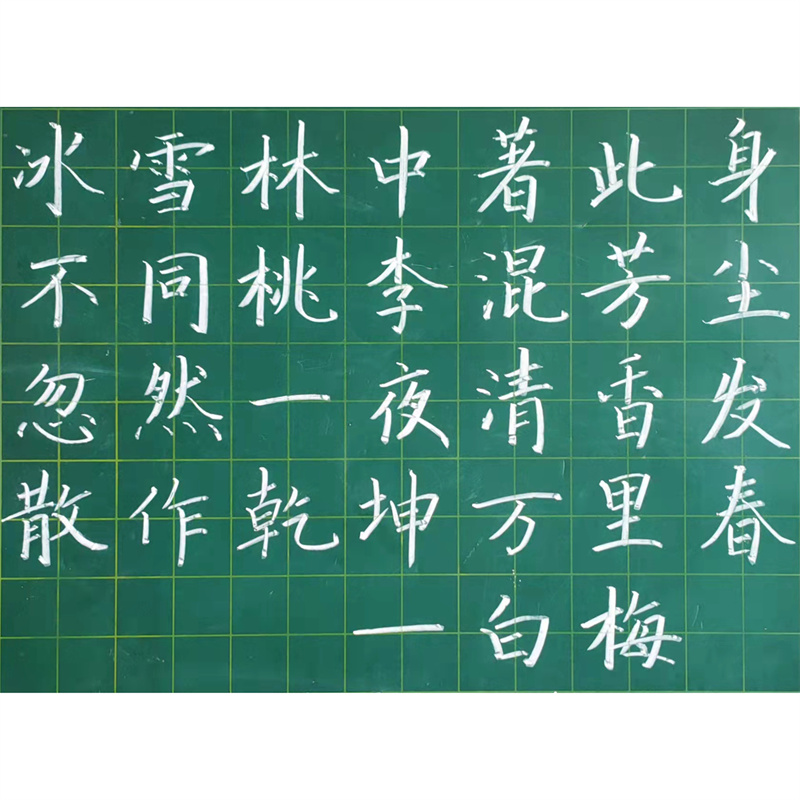 冰雪林中著此身
不同桃李混芳尘
忽然一夜清香发
散作乾坤万里春
一白梅